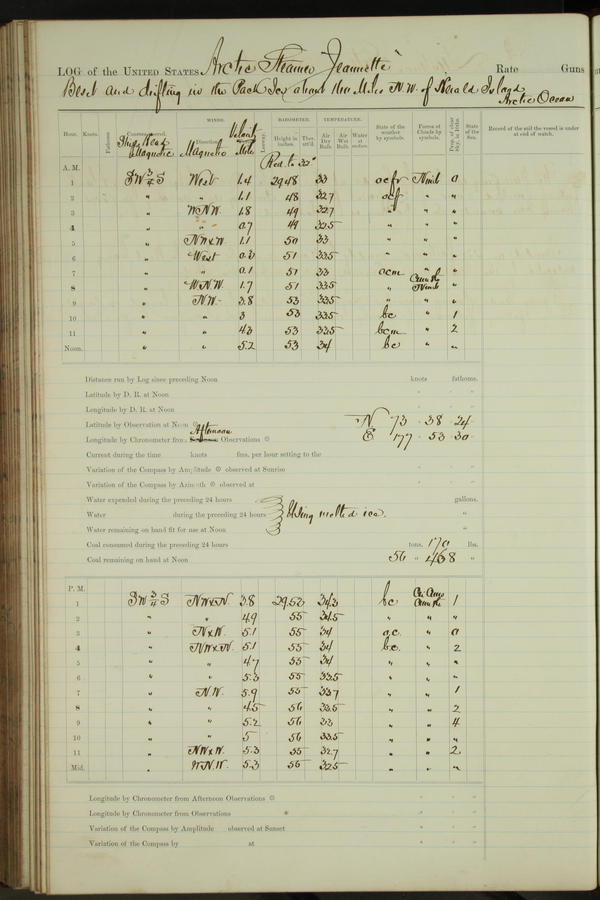 LOG of the UNITED STATES Arctic Steamer "Jeannette" Rate Guns
Beset and drifting in the Pack Ice about Miles N.W. of Herald Island
Arctic Ocean
WINDS. BAROMETER. TEMPERATURE.
Hour. Knots. Fathoms Ship's Head Magnetic Direction Magnetic Velocity Miles Leeway Height in inches. Ther. att'd. Air Dry Bulb. Air Wet Bulb. Water at surface. State of the weather by symbols. Forms of Clouds by symbols. Prop. of clear Sky, in 10ths. State of the Sea. Record of the sail the vessel is under at end of watch.
A. M. Red. to 32°
1 SW 3/4 S West 1.4 29 48 33 ocfr Nimb 0
2 " " 1.1 48 32.7 ocf " "
3 " WNW. 1.8 49 32.7 " " "
4 " " 0.7 49 32.5 " " "
5 " NWxW. 1.1 50 33 " " "
6 " West 51 33.5 " " "
7 " " 0.1 51 33 ocm " "
8 " W.N.W. 1.7 51 33.5 " Nimb "
9 " N.W. 3.8 53 33.5 " " "
10 " " 3 53 33.5 bc " 1
11 " " 4.3 53 33.5 bcm " 2
Noon. " " 5.2 53 34 bc " "
Distance run by Log since preceding Noon knots fathoms.
Latitude by D. R. at Noon
Longitude by D. R. at Noon
Latitude by Observation at Noon N. 73 . 38 . 24
Afternoon
Longitude by Chronometer from Observations E 177 . 53 . 30
Current during the time knots fms. per hour setting to the
Variation of the Compass by Amplitude observed at Sunrise
Variation of the Compass by Azimuth observed at
Water expended during the preceding 24 hours gallons.
Water during the preceding 24 hours Using melted ice. "
Water remaining on hand fit for use at Noon "
Coal consumed during the preceding 24 hours tons. 170 lbs.
Coal remaining on hand at Noon 56 " 468 "
P. M.
1 SW 3/4 S NWxN. 3.8 29.53 34.3 bc 1
2 " " 4.9 55 34.5 " " "
3 " NxW. 5.1 55 34 oc. " 0
4 " NWxN. 5.1 55 34 bc. " 2
5 " " 4.7 55 34 " " "
6 " " 5.3 55 33.5 " " "
7 " N.W. 5.9 55 33.7 " " 1
8 " " 4.5 56 33.5 " " 2
9 " " 5.2 56 33 " " 4
10 " " 5 56 33.5 " " "
11 " NWxW. 5.3 55 32.7 " " 2
Mid. " W.N.W. 5.3 56 32.5 " " "
Longitude by Chronometer from Afternoon Observations
Longitude by Chronometer from Observations
Variation of the Compass by Amplitude observed at Sunset
Variation of the Compass by at